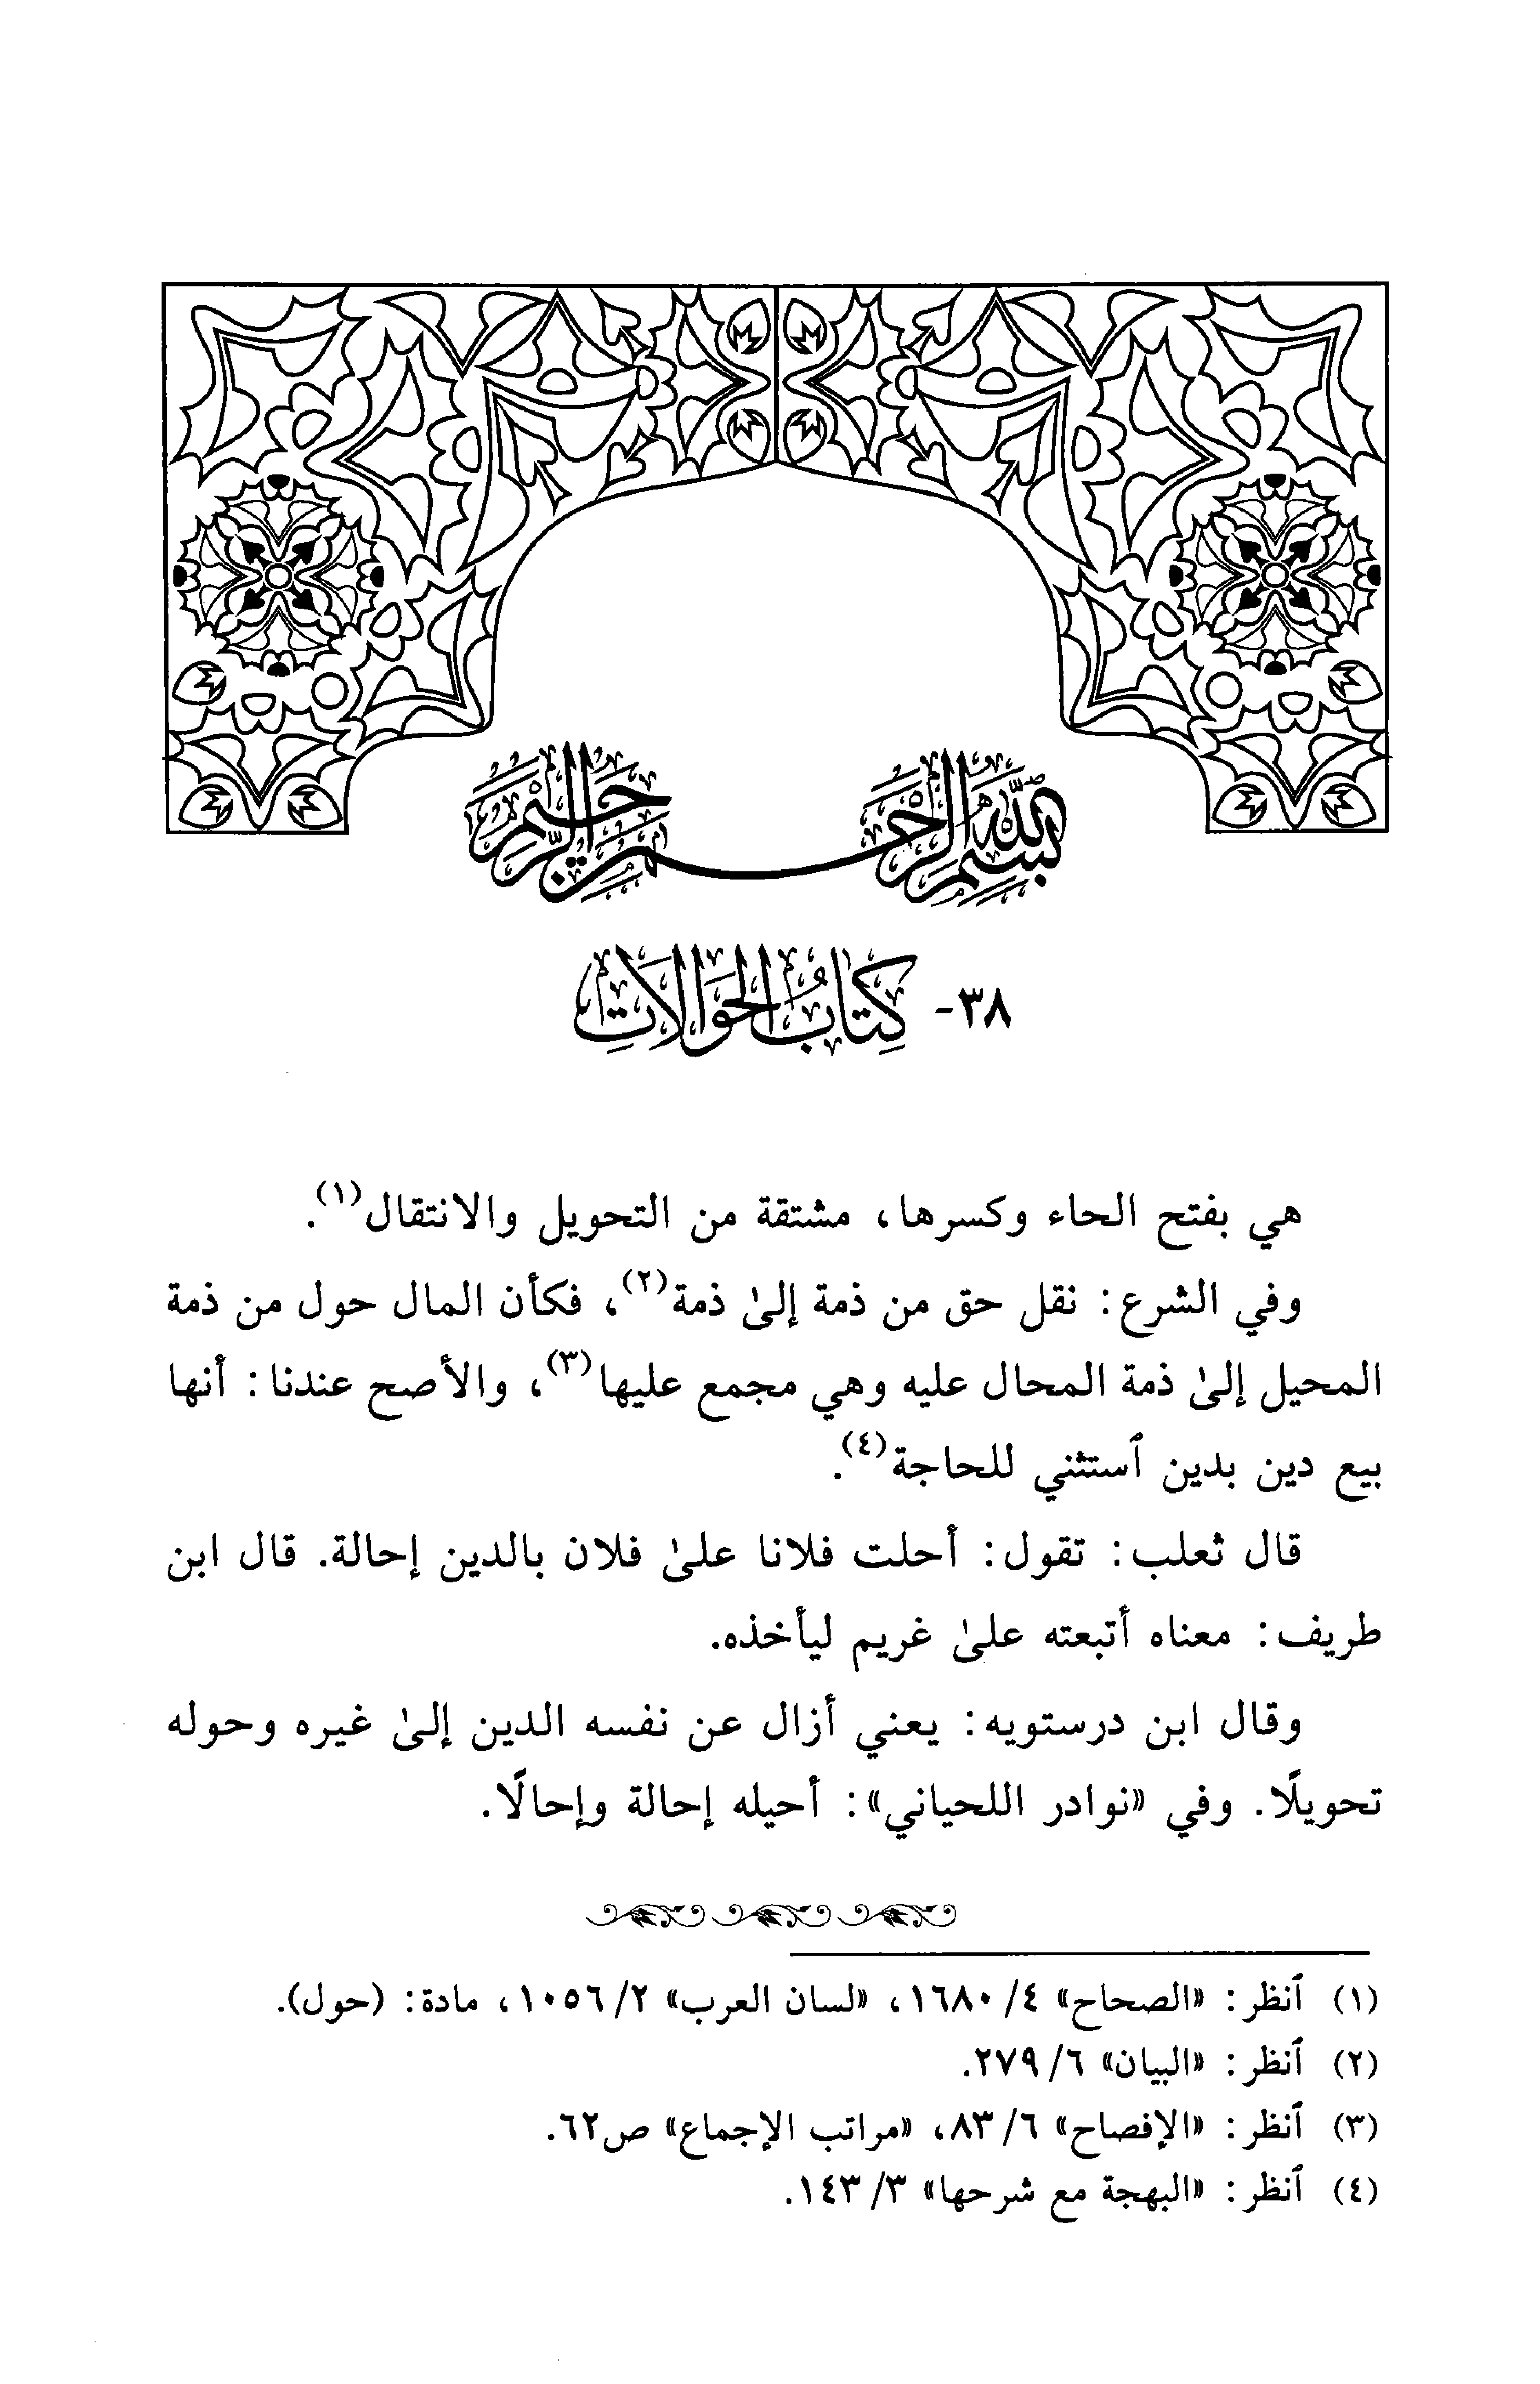 بسم الله الرحمن الرحيم
٣٨- كتاب الحوالات
هي بفتح الحاء وكسرها، مشتقة من التحويل والانتقال(١).
وفي الشرع: نقل حق من ذمة إلىٰ ذمة(٢)، فكأن المال حول من ذمة
المحيل إلىٰ ذمة المحال عليه وهي مجمع عليها(٣)، والأصح عندنا: أنها
بيع دين بدين ٱستثني للحاجة(٤).
قال ثعلب: تقول: أحلت فلانا علىٰ فلان بالدين إحالة. قال ابن
طريف: معناه أتبعته علىٰ غريم ليأخذه.
وقال ابن درستويه: يعني أزال عن نفسه الدين إلىٰ غيره وحوله
تحويلًا. وفي «نوادر اللحياني»: أحيله إحالة وإحالًا.
(١) ٱنظر: «الصحاح» ٤/ ١٦٨٠، «لسان العرب» ٢/ ١٠٥٦، مادة: (حول).
(٢) ٱنظر: «البيان» ٦/ ٢٧٩.
(٣) ٱنظر: «الإفصاح» ٦/ ٨٣، «مراتب الإجماع» ص٦٢.
(٤) ٱنظر: «البهجة مع شرحها» ٣/ ١٤٣.